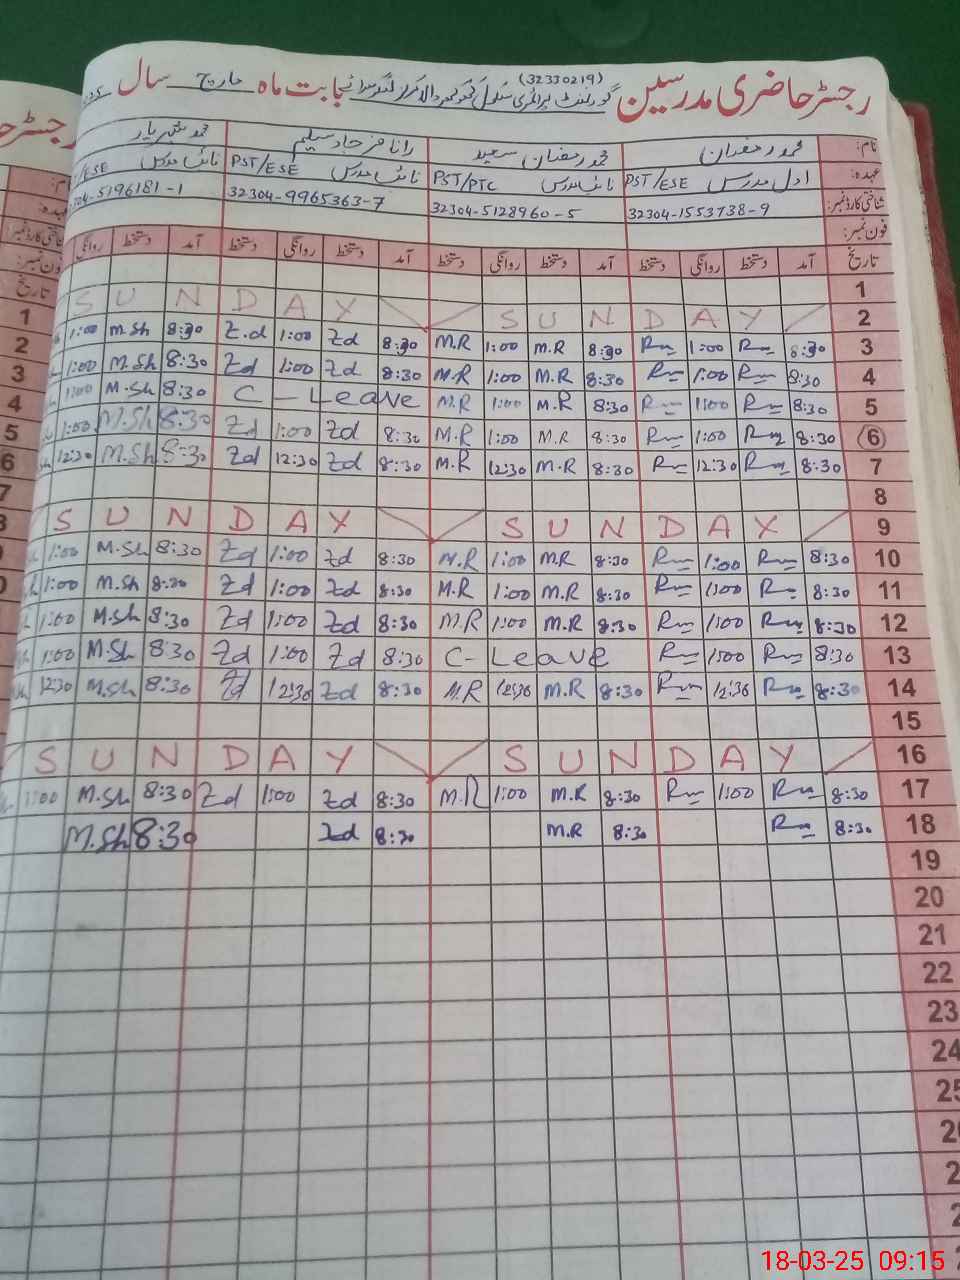 رجسٹر حاضری مدرسین (32330219) گورنمنٹ پرائمری سکول بابت ماہ مارچ سال
نام: محمد رمضان محمد رمضان سعید رانا فرحاد سلیم محمد شہریار
عہدہ: اول مدرس PST/ESE نائب مدرس PST/PTC نائب مدرس PST/ESE نائب مدرس /ESE
شناختی کارڈ نمبر: 32304-1553738-9 32304-5128960-5 32304-9965363-7 304-5196181-1
فون نمبر:
تاریخ آمد دستخط روانگی دستخط آمد دستخط روانگی دستخط آمد دستخط روانگی دستخط آمد دستخط روانگی
1
SUNDAY SUNDAY 2
1:00 M.Sh 8:30 Z.d 1:00 Zd 8:30 M.R 1:00 M.R 8:30 Rm 1:00 Rm 8:30 3
1:00 M.Sh 8:30 Zd 1:00 Zd 8:30 M.R 1:00 M.R 8:30 Rm 1:00 Rm 8:30 4
1:00 M.Sh 8:30 C-Leave M.R 1:00 M.R 8:30 Rm 1:00 Rm 8:30 5
1:00 M.Sh 8:30 Zd 1:00 Zd 8:30 M.R 1:00 M.R 8:30 Rm 1:00 Rm 8:30 6
12:30 M.Sh 8:30 Zd 12:30 Zd 8:30 M.R 12:30 M.R 8:30 Rm 12:30 Rm 8:30 7
8
SUNDAY SUNDAY 9
1:00 M.Sh 8:30 Zd 1:00 Zd 8:30 M.R 1:00 M.R 8:30 Rm 1:00 Rm 8:30 10
1:00 M.Sh 8:30 Zd 1:00 Zd 8:30 M.R 1:00 M.R 8:30 Rm 1:00 Rm 8:30 11
1:00 M.Sh 8:30 Zd 1:00 Zd 8:30 M.R 1:00 M.R 8:30 Rm 1:00 Rm 8:30 12
1:00 M.Sh 8:30 Zd 1:00 Zd 8:30 C-Leave Rm 1:00 Rm 8:30 13
12:30 M.Sh 8:30 Zd 12:30 Zd 8:30 M.R 12:30 M.R 8:30 Rm 12:30 Rm 8:30 14
15
SUNDAY SUNDAY 16
1:00 M.Sh 8:30 Zd 1:00 Zd 8:30 M.R 1:00 M.R 8:30 Rm 1:00 Rm 8:30 17
M.Sh 8:30 Zd 8:30 M.R 8:30 Rm 8:30 18
19
20
21
22
23
24
25
18-03-25 09:15